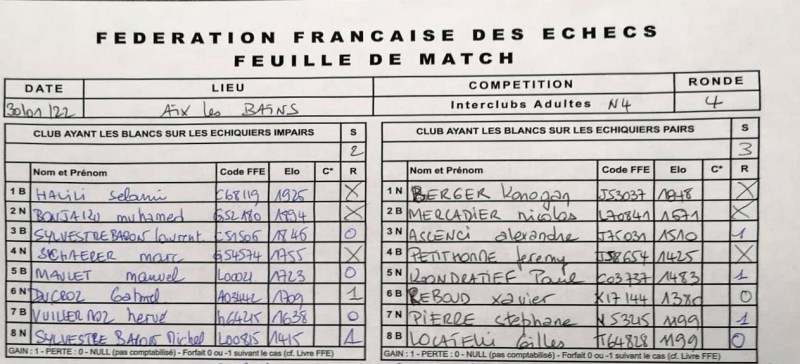 FEDERATION FRANCAISE DES ECHECS
FEUILLE DE MATCH
DATE LIEU COMPETITION RONDE
30/01/22 Aix les BAINS Interclubs Adultes N4 4
CLUB AYANT LES BLANCS SUR LES ECHIQUIERS IMPAIRS S CLUB AYANT LES BLANCS SUR LES ECHIQUIERS PAIRS S
2 3
Nom et Prénom Code FFE Elo C* R Nom et Prénom Code FFE Elo C* R
1 B HALILI Selami C68119 1925 X 1 N BERGER Konogan J53037 1848 X
2 N muhamed G52180 1894 X 2 B MERCADIER nicolas L70841 1571 X
3 B SYLVESTRE BARON laurent C51506 1846 0 3 N ASCENCI alexandre J75031 1510 1
4 N SCHAERER marc G54574 1755 X 4 B PETITHOMME Jeremy 1425 X
5 B MAULET manuel L00021 1723 0 5 N KONDRATIEF Paul C03737 1483 1
6 N DUCROZ Gabriel A03442 1709 1 6 B REBOUD xavier X17144 1380 0
7 B VUILLERMOZ hervé h64215 1638 0 7 N PIERRE Stephane N53215 1199 1
8 N SYLVESTRE BARON Michel L00815 1415 1 8 B LOCATELLI Gilles T64828 1199 0
GAIN : 1 - PERTE : 0 - NULL (pas comptabilisé) - Forfait 0 ou -1 suivant le cas (cf. Livre FFE) GAIN : 1 - PERTE : 0 - NULL (pas comptabilisé) - Forfait 0 ou -1 suivant le cas (cf. Livre FFE)